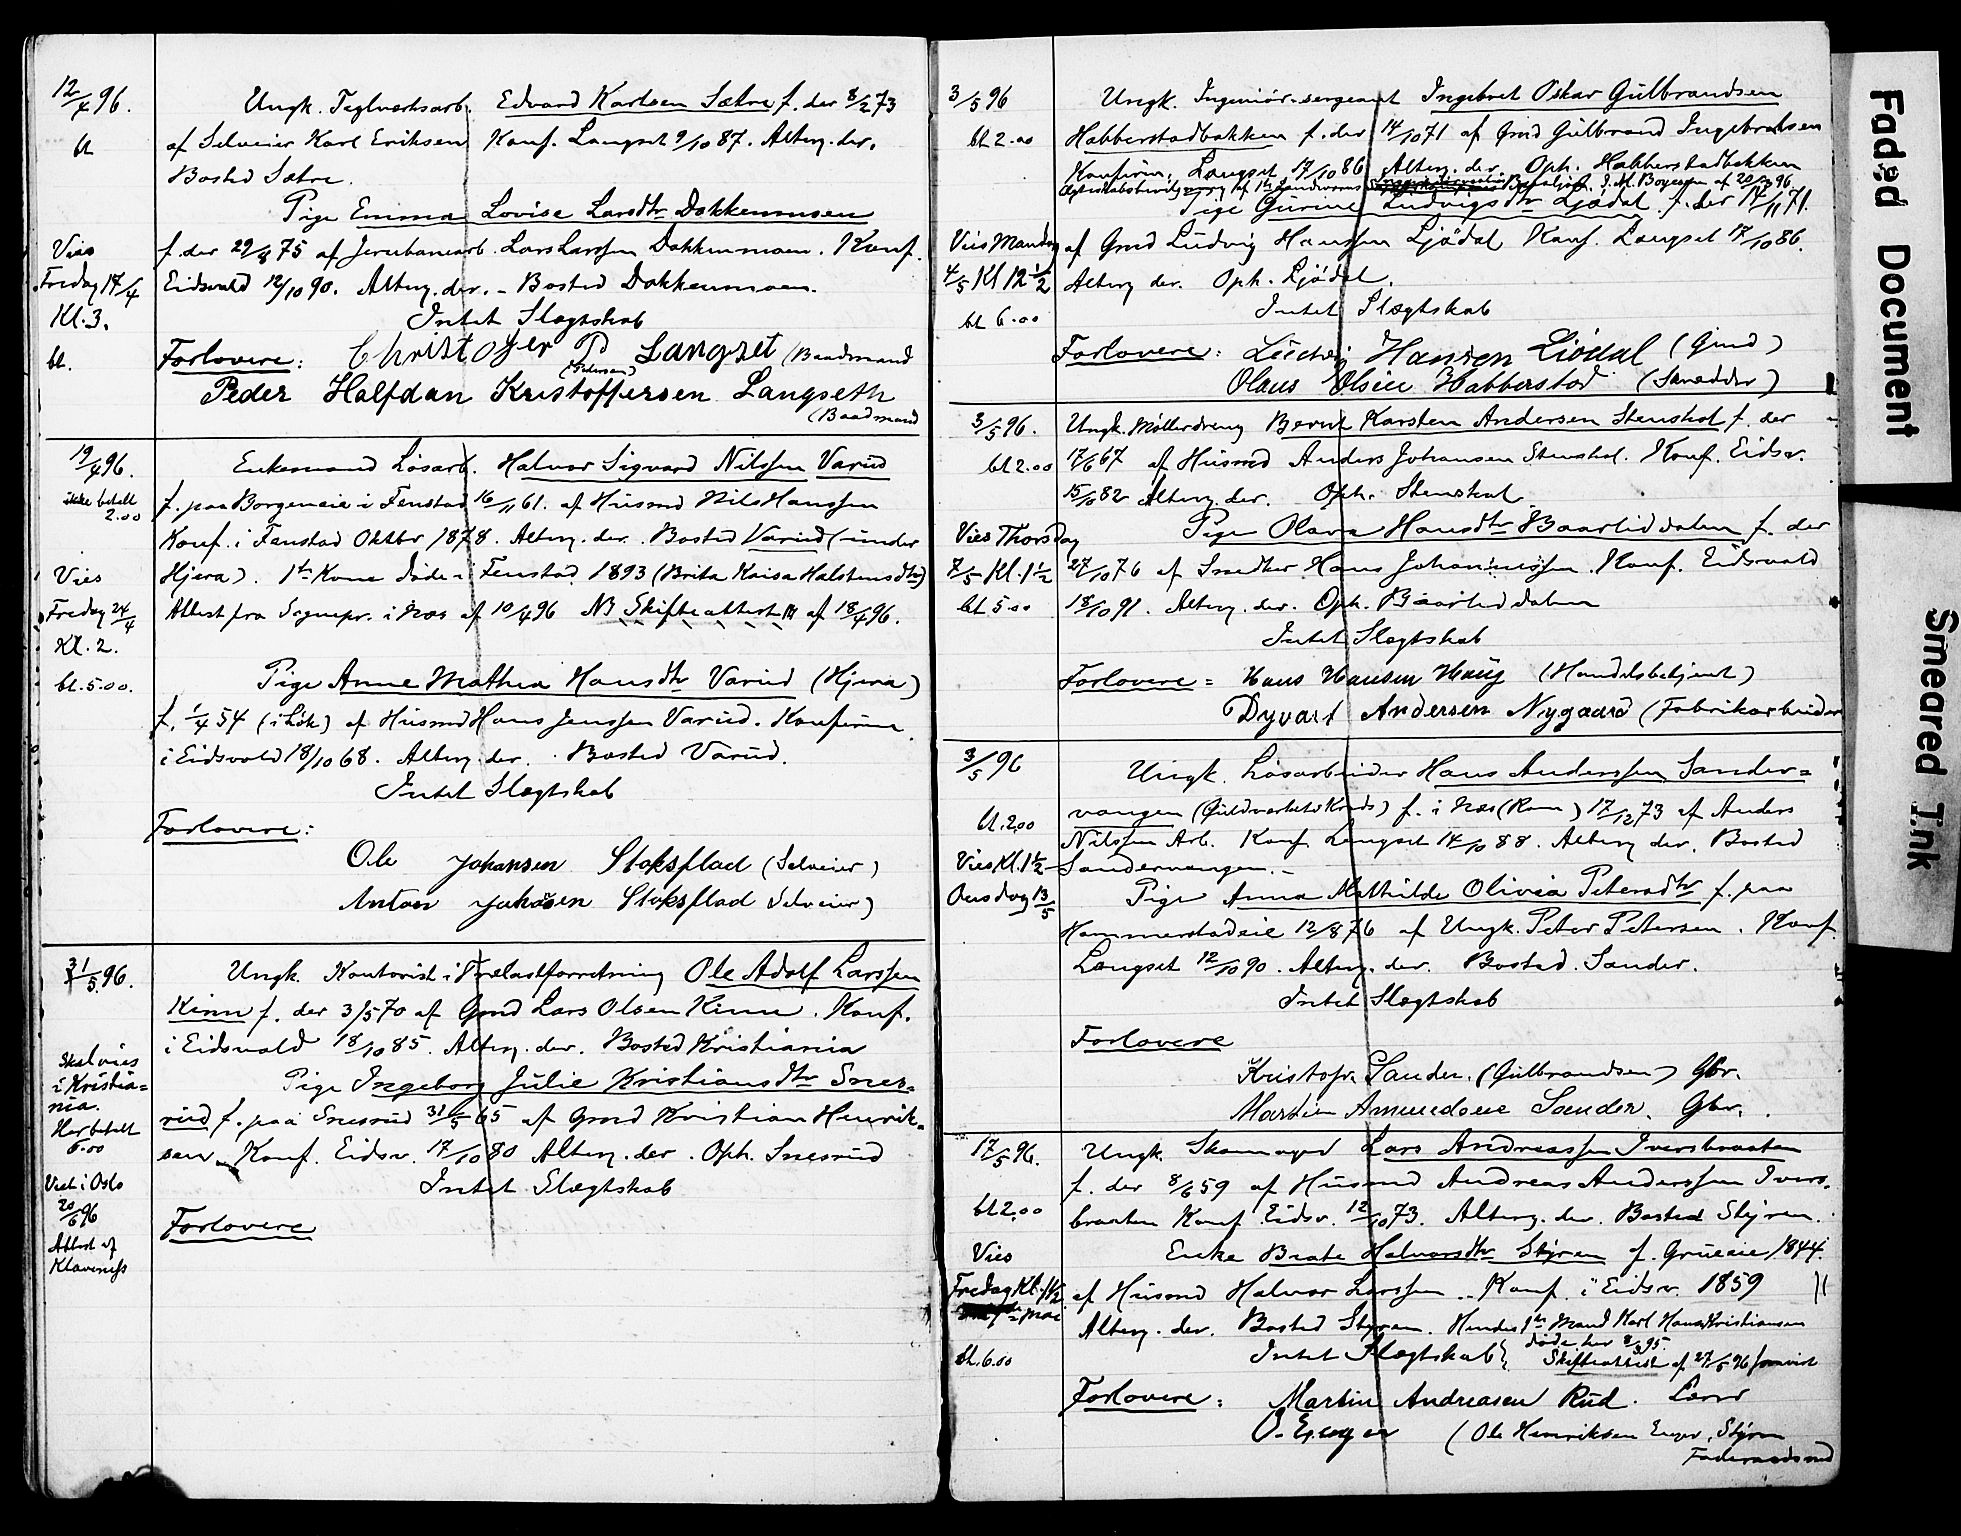 12/4 96.
Ungk. Teglverksarb. Edvard Karlsen Sætre f. der 8/2 73
bt
af Selveier Karl Eriksen Konf. Langset 9/10 87. Alterg. der.
Bosted Sætre.
Pige Emma Lovise Larsdtr Dokkenmoen
Vies
f. der 29/8 75 af Jernbanearb. Lars Larssen Dokkenmoen. Konf.
Fredag 17/4
Eidsvold 12/10 90. Alterg. der. - Bosted Dokkenmoen.
Kl. 3.
Intet Slægtskab
bt.
Forlovere: Christofer P Langset (Baadmand
(Pedersen)
Peder Halfdan Kristoffersen Langseth
(Baadmand
19/4 96.
Enkemand Løsarb. Halvor Sigvard Nilssen Varud
ikke betalt
2.00
f. paa Borgeneie i Fenstad 16/11 61. af Husmd Nils Hanssen
Konf. i Fenstad Oktbr 1878. Alterg. der. Bosted Varud (under
Vies
Hjera). 1ste Kone døde i Fenstad 1893 (Brita Kaisa Halstensdtr)
Fredag 24/4
Attest fra Sognepr. i Næs af 10/4 96 NB Skifteattest af 18/4 96.
Kl. 2.
bt. 5.00.
Pige Anne Mathea Hansdtr Varud (Hjera)
f. 1/4 54 (i Løk) af Husmd Hans Jenssen Varud. Konfirm.
i Eidsvold 18/10 68. Alterg. der. Bosted Varud.
Intet Slægtskab
Forlovere:
Ole Johansen Stoksflad (Selveier)
Anton Johansen Stoksflad Selveier)
31/5 96.
Ungk. Kontorist i Trælastforretning Ole Adolf Larssen
Kinn f. der 3/5 70 af Gmd Lars Olsen Kinn. Konf.
i Eidsvold 18/10 85. Alterg. der. Bosted Kristiania
Skal vies
i Kristia=
nia.
Pige Ingeborg Julie Kristiansdtr Snes=
Har betalt
6.00
rud f. paa Snesrud 31/5 65 af Gmd Kristian Henrik=
sen. Konf. Eidsv. 17/10 80 Alterg. der. Oph. Snesrud
Viet i Oslo
20/6 96
Intet Slægtskab
Attest af
Klaveness
Forlovere
3/5 96
Ungk. Ingeniør-sergeant Ingebret Oskar Gulbrandsen
bt 2.00
Habberstadbakken f. der 14/10 71 af Gmd Gulbrand Ingebretsen
Konfirm. Langset 17/10 86. Alterg. der Oph. Habberstadbakken
Pige Gurine Ludvigsdtr Ljødal f. der 14/11 71.
Vies Mandag
af Gmd Ludvig Hanssen Ljødal Konf. Langset 17/10 86.
4/5 Kl 12 1/2
Alterg der. Oph. Ljødal.
bt 6.00
Intet Slægtskab
Forlovere: Ludvig Hansen Liødal (Gmd)
Olaus Olsen Habberstad (Skrædder)
3/5 96.
Ungk. Møllerdreng Bernt Karsten Andersen Stenshol f. der
bt 2.00
17/6 67 af Husmd Anders Johansen Stenshol. Konf. Eidsv.
15/10 82 Alterg. der. Oph. Stenshol
Vies Thorsdag
Pige Olava Hansdtr Baarliddalen f. der
7/5 Kl. 1 1/2
27/10 76 af Snedker Hans Johannessen. Konf. Eidsvold
bt 5.00
18/10 91. Alterg. der. Oph. Baarliddalen
Intet Slægtskab
Forlovere = Hans Hansen Haug (Handelsbetjent)
Dyvart Andersen Nygaard (Fabrikarbeider
3/5 96
Ungk. Løsarbeider Hans Anderssen Sander=
bt. 2,00
vangen (Guldverkets Kreds) f. i Næs (Rom.) 17/12 73 af Anders
Nilssen Arb. Konf. Langset 14/10 88. Alterg. der. Bosted
Vies Kl. 1 1/2
Sandervangen. -
Onsdag 13/5
Pige Anna Mathilde Olivia Petersdtr f. paa
Hammerstadeie 12/8 76 af Ungk. Peter Petersen. Konf.
Langset 12/10 90. Alterg. der. Bosted. Sander.
Intet Slægtskab
Forlovere
Kristofr. Sander. (Gulbrandsen) Gbr.
Martin Amundsen Sander. Gbr.
17/5 96.
Ungk. Skomager Lars Andreassen Iversbraaten
f. der 8/6 59 af Husmd Andreas Anderssen Ivers.
bt 2.00
braaten Konf. Eidsv. 12/10 73. Alterg. der. Bosted Styren.
Vies
Enke Beate Halvorsdtr Styren f. Grueeie 1844.
Fredag Kl. 1 1/2
af Husmd Halvor Larssen .. Konf. i Eidsv. 1859
Mai
Alterg. der. Bosted Styren. Hendes 1ste Mand Karl Hans Kristiansen
døde her 8/9 95.
bt. 6.00
Intet Slægtskab. Skifteattest af 27/5 96 forevist
Forlovere: Martin Andreasen Rud. Lærer
O. Enger (Ole Henriksen Enger, Styren
Føderaadsmd
Faded Document
Smeared Ink